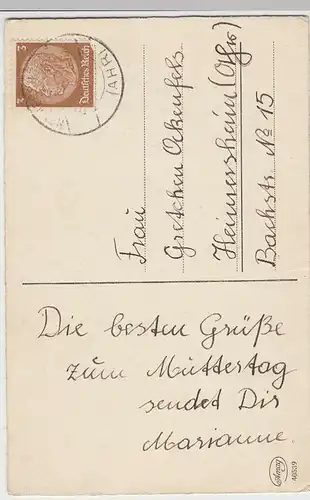 3 3
Deutsches Reich
(AHR)
Frau
Gretchen Ockenfels
Heimersheim (Ahr)
Bachstr. No 15
Die besten Grüße
zum Muttertag
sendet Dir
Marianne.
Amag